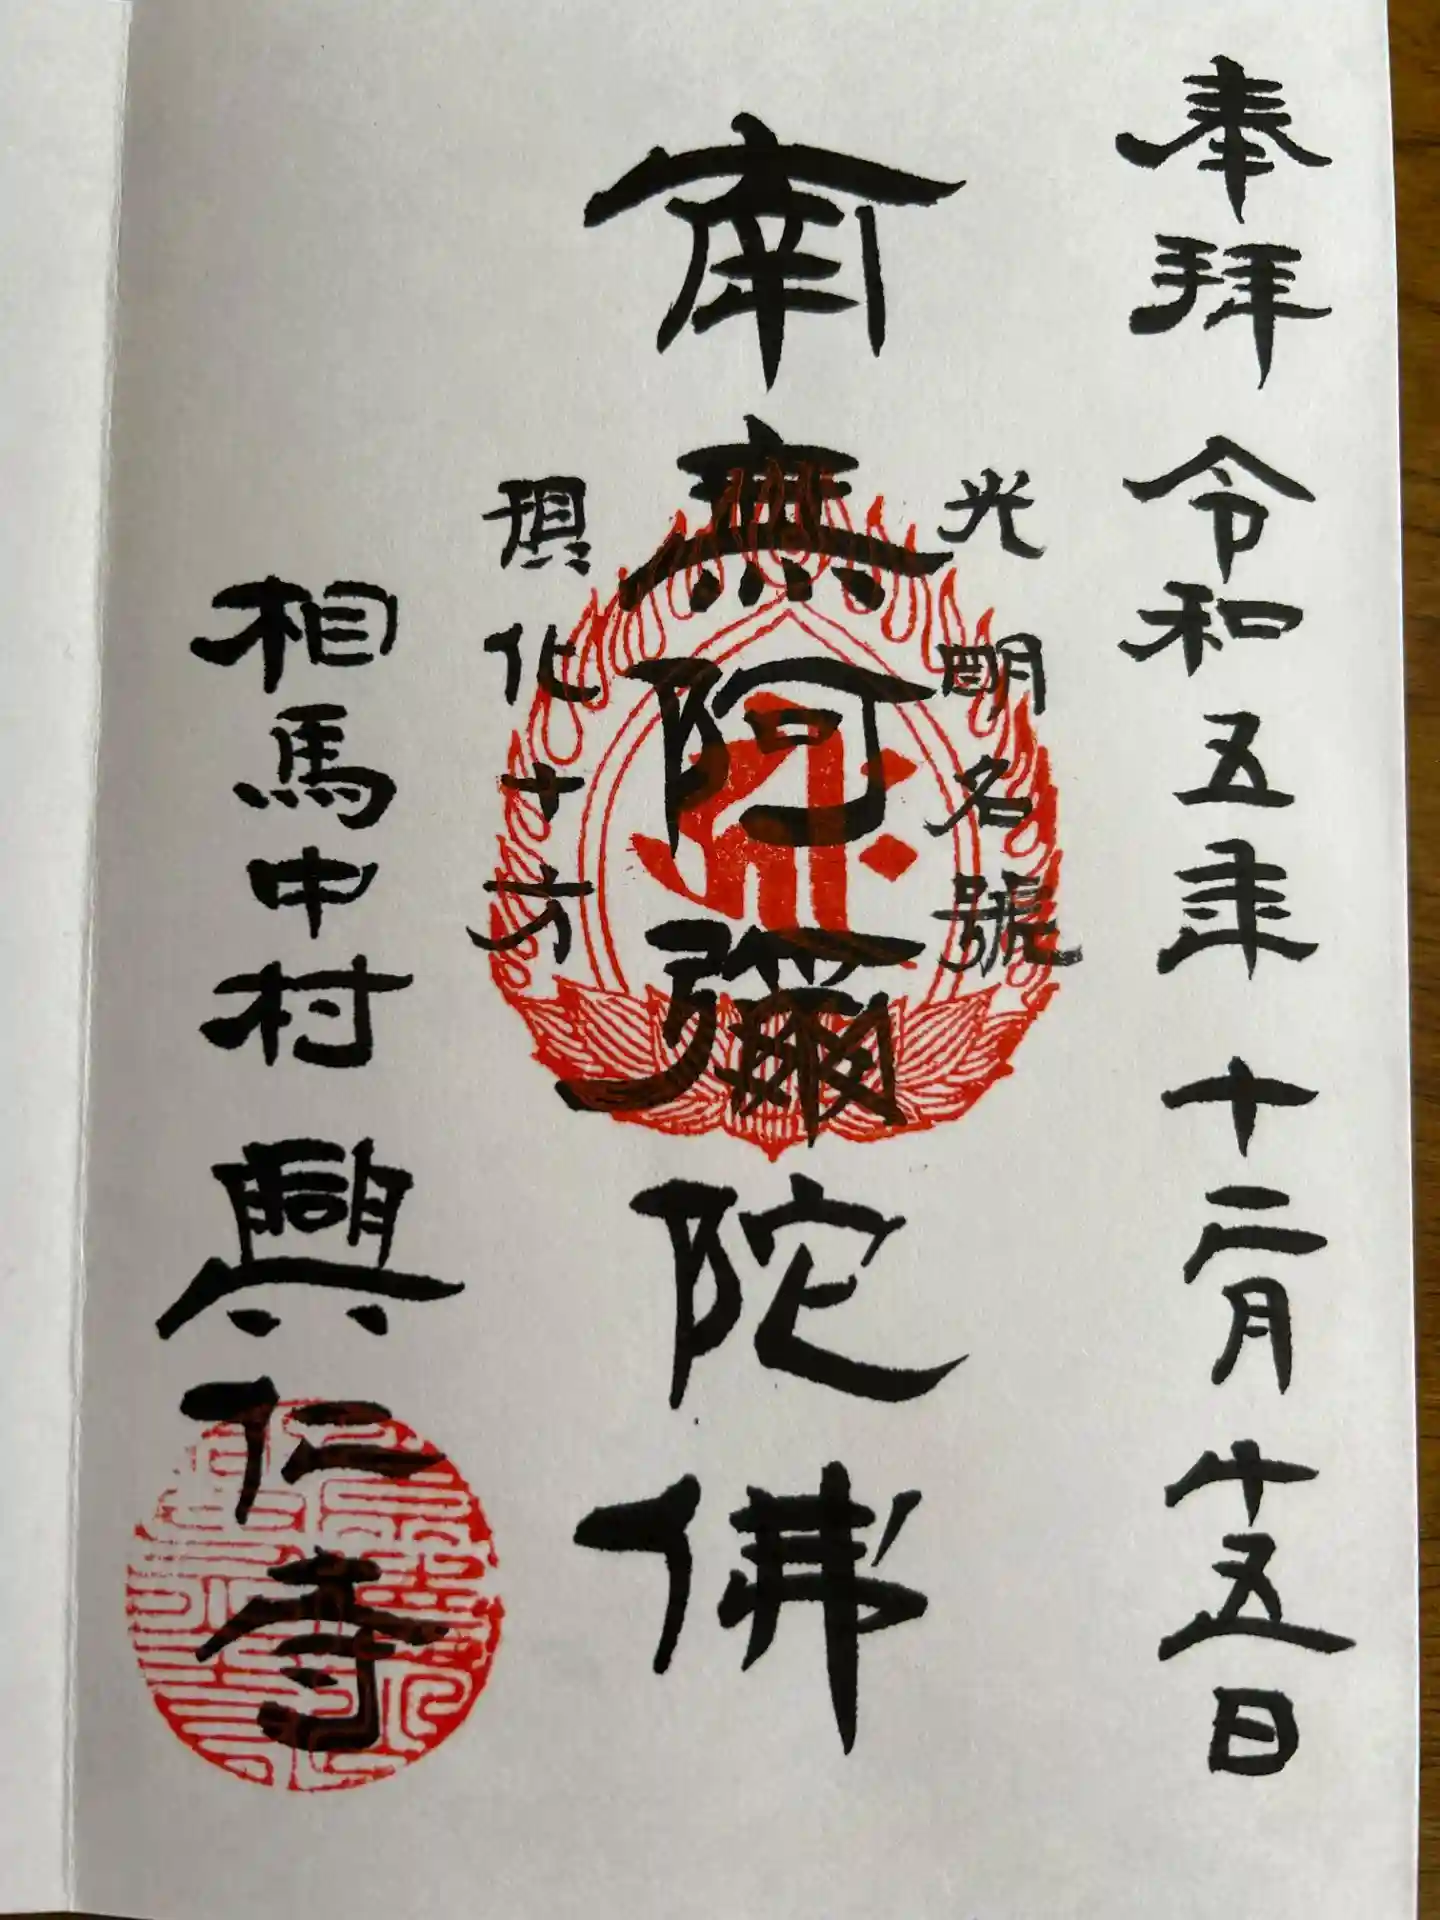 奉拝 令和五年 十二月 十五日
光明名號
南無阿彌陀佛
現化十方
相馬中村 興仁寺